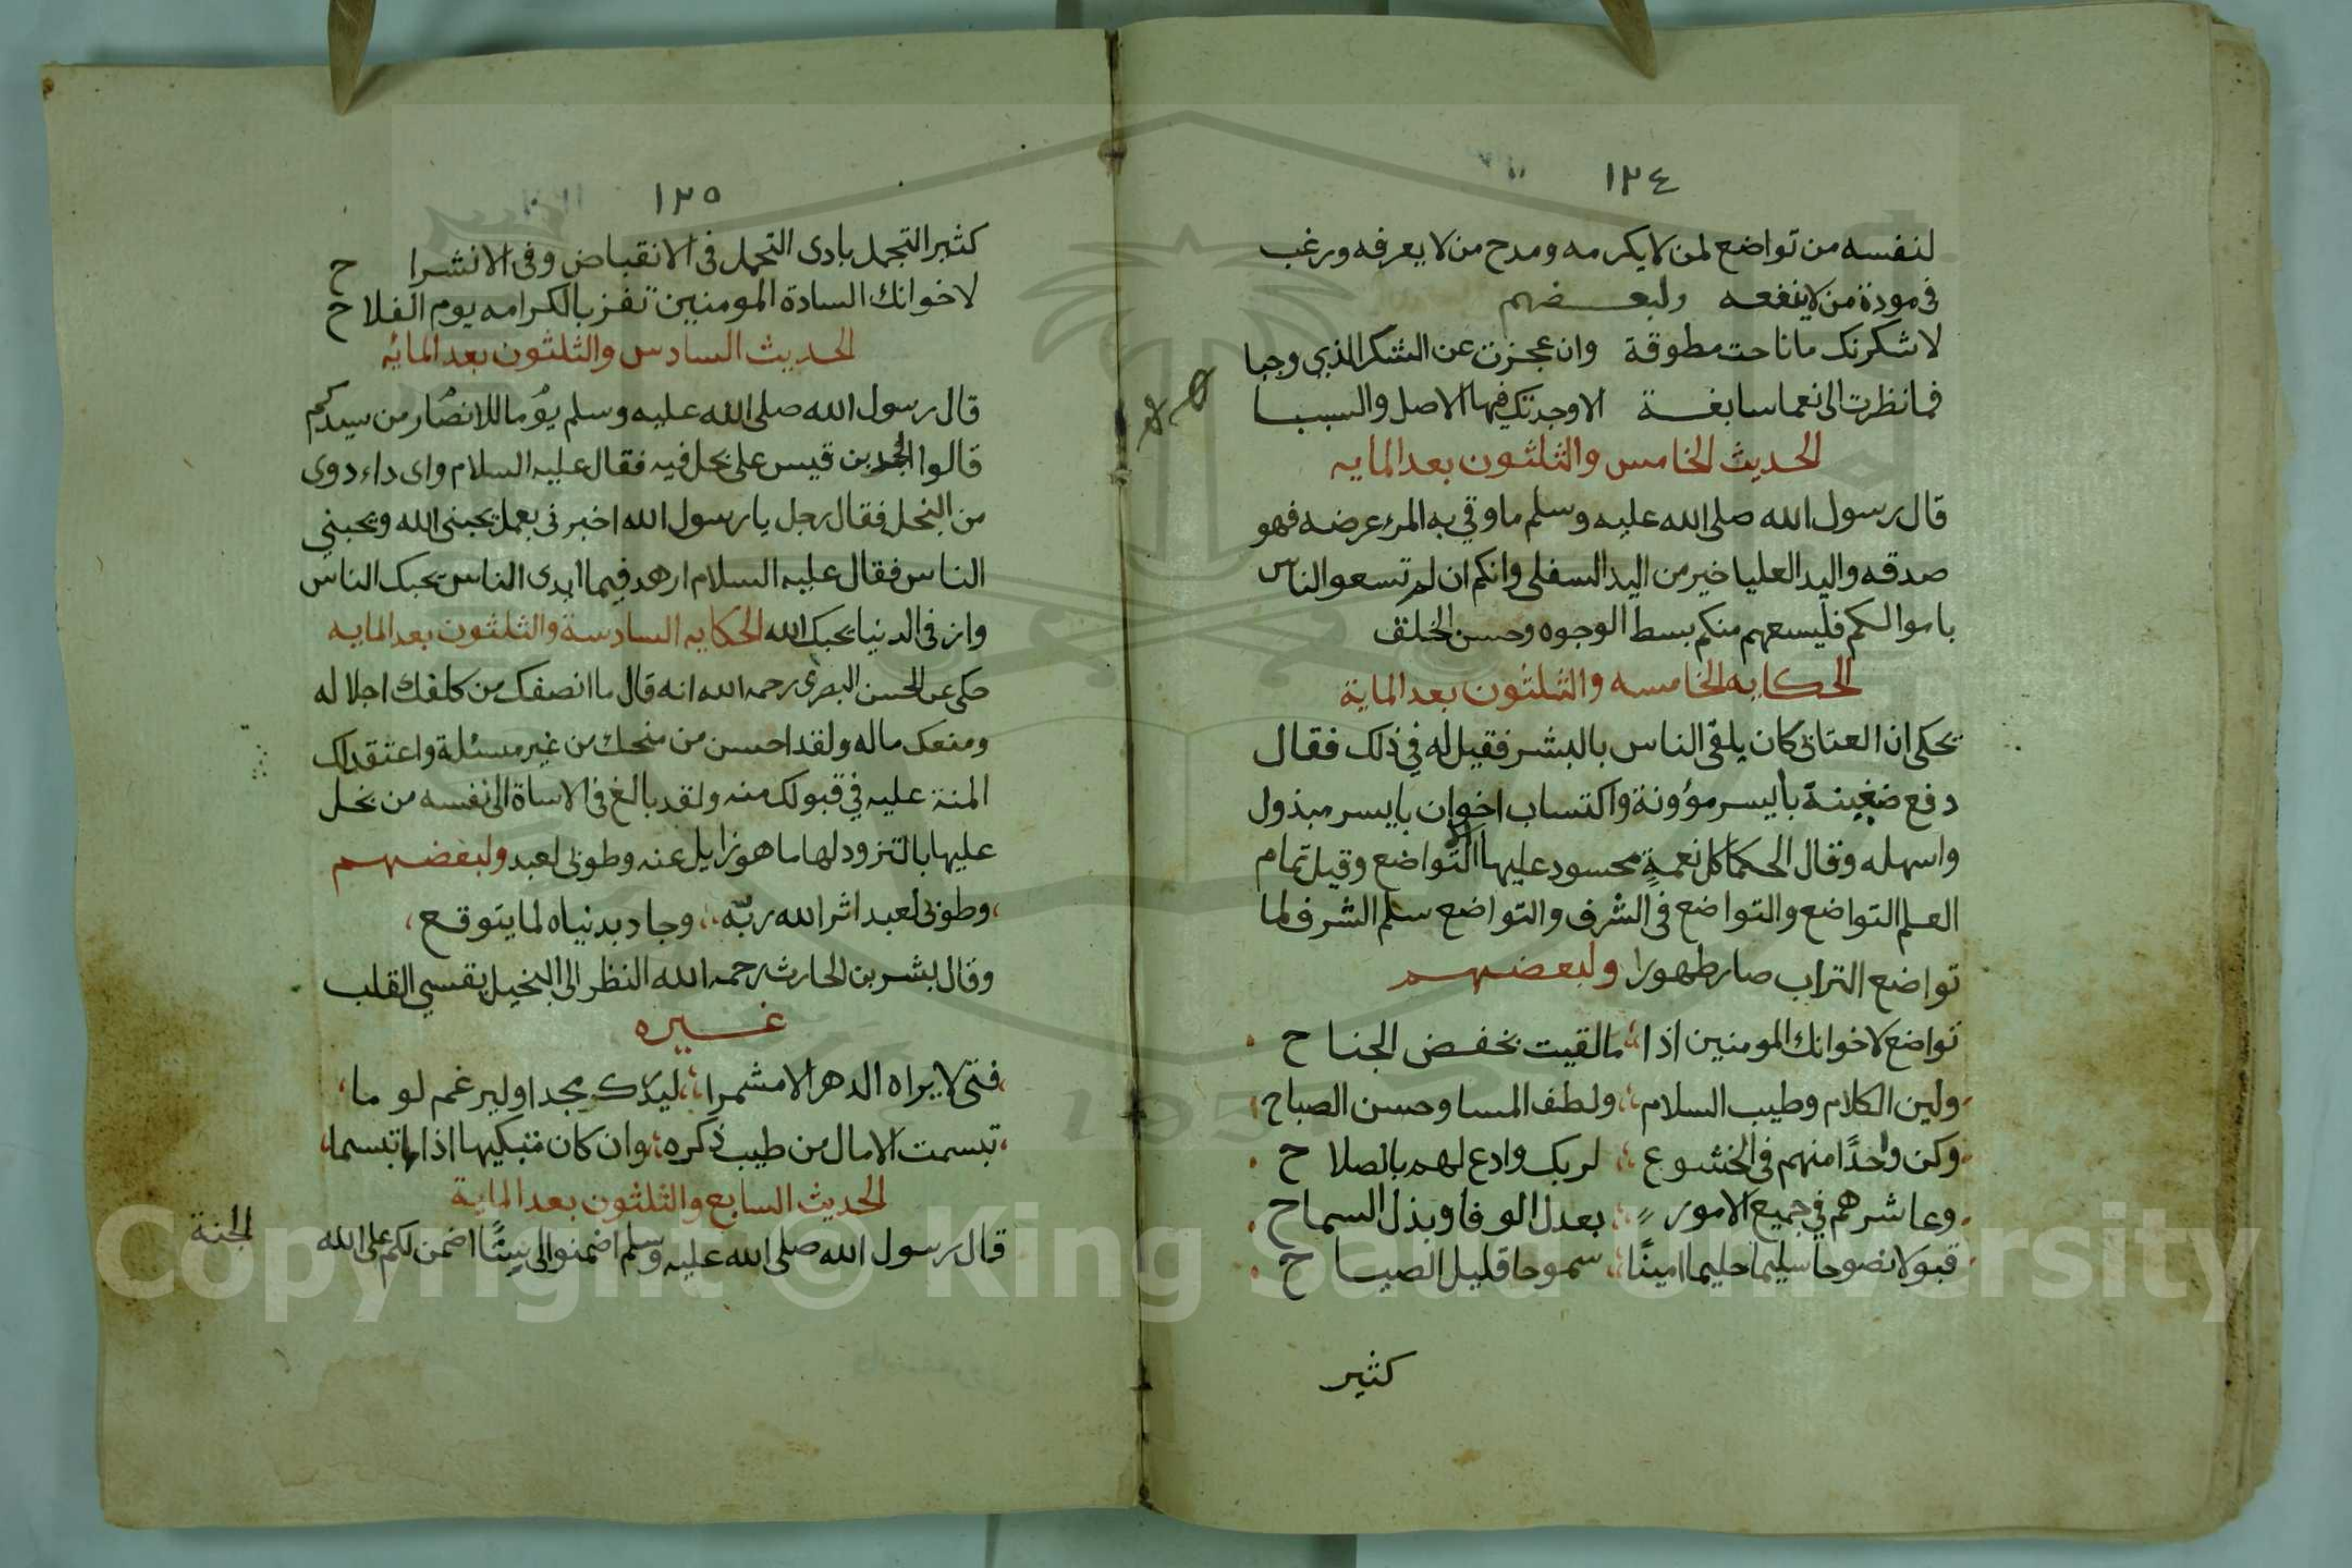 ١٢٤
لنفسه من تواضع لمن لايكرمه ومدح من لا يعرفه ورغب
فى مودة من لاينفعه ولبعضهم
لاشكرنك ماناحت مطوقة وان عجزت عن الشكر الذي وجبا
فما نظرت الى نعما سابغة الا وجدتك فيها الاصل والسببا
الحديث الخامس والثلثون بعد المايه
قال رسول الله صلى الله عليه وسلم ما وقي به المرء عرضه فهو
صدقه واليد العليا خير من اليد السفلى وانكم ان لم تسعوا الناس
باموالكم فليسعهم منكم بسط الوجوه وحسن الخلق
الحكايه الخامسه والثلثون بعد الماية
يحكى ان العتابى كان يلقى الناس بالبشر فقيل له في ذلك فقال
دفع ضغينة بايسر مؤونة واكتساب اخوان بايسر مبذول
واسهله وقال الحكما كل نعمةٍ محسود عليها الا التواضع وقيل تمام
العلم التواضع والتواضع فى الشرف والتواضع سلم الشرف لما
تواضع التراب صار طهورا ولبعضهم
تواضع لاخوانك المومنين اذا ما لقيت بخفض الجناح
ولين الكلام وطيب السلام ولطف المسا وحسن الصباح
وكن واحدًا منهم فى الخشوع لربك وادع لهم بالصلاح
وعاشرهم في جميع الامور بعدل الوفا وبذل السماح
قبولا نصوحا سليما حليما امينًا سموحا قليل الصياح
كثير
١٢٥
كثير التجمل بادى التحمل فى الانقباض وفى الانشراح
لاخوانك السادة المومنين تفز بالكرامه يوم الفلاح
الحديث السادس والثلثون بعد المائه
قال رسول الله صلى الله عليه وسلم يوما للانصار من سيدكم
قالوا الجد بن قيس على بخل فيه فقال عليه السلام واى داء دوى
من البخل فقال رجل يا رسول الله اخبرنى بعمل يحبنى الله ويحبني
الناس فقال عليه السلام ازهد فيما ايدى الناس يحبك الناس
واز فى الدنيا يحبك الله الحكايه السادسة والثلثون بعد المايه
حكى عن الحسن البصرى رحمه الله انه قال ما انصفك من كلفك اجلاله
ومنعك ماله ولقد احسن من منحك من غير مسئلة واعتقد لك
المنة عليه في قبولك منه ولقد بالغ فى الاساة الى نفسه من بخل
عليها بالتزود لها ما هو زايل عنه وطوبى لعبد ولبعضهم
وطوبى لعبد اثر الله ربّه وجاد بدنياه لما يتوقع
وقال بشر بن الحارث رحمه الله النظر الى البخيل يقسي القلب
غيره
فتى لا يراه الدهر الا مشمرا ليدرك مجدا او ليرغم لوما
تبسمت الامال من طيب ذكره وان كان متبكيها اذا ما تبسما
الحديث السابع والثلثون بعد الماية
قال رسول الله صلى الله عليه وسلم اضمنوا لى ستًا اضمن لكم على الله
الجنة
Copyright © King Saud University
1957